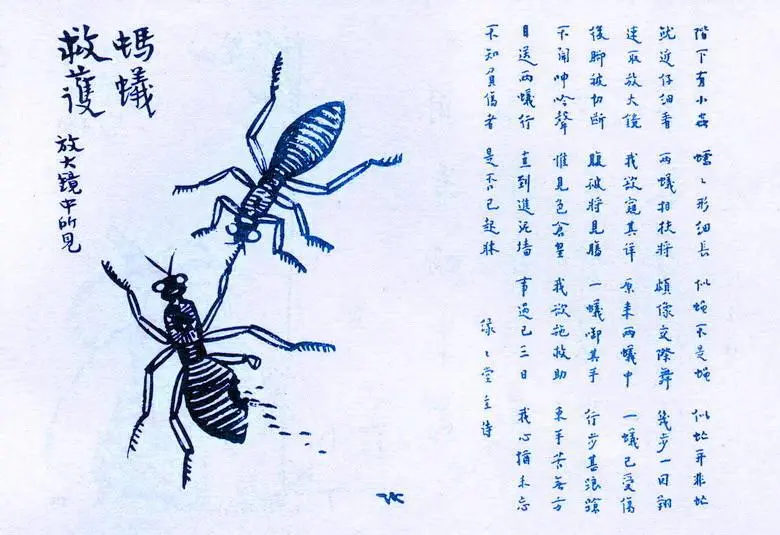 螞蟻
救護
放大鏡中所見
階下有小虫 蠕々形細長 似蠅不是蠅 似虻并非虻
就近仔細看 兩蟻相扶將 頗像交際舞 幾步一回翔
速取放大鏡 我欲窺其詳 原來兩蟻中 一蟻已受傷
後脚被切斷 腹破將見腸 一蟻啣其手 行步甚踉蹌
不聞呻吟聲 惟見色倉皇 我欲施救助 束手苦無方
目送兩蟻行 直到進泥墻 事過已三日 我心猶未忘
不知負傷者 是否已起牀
緣々堂主詩
TK